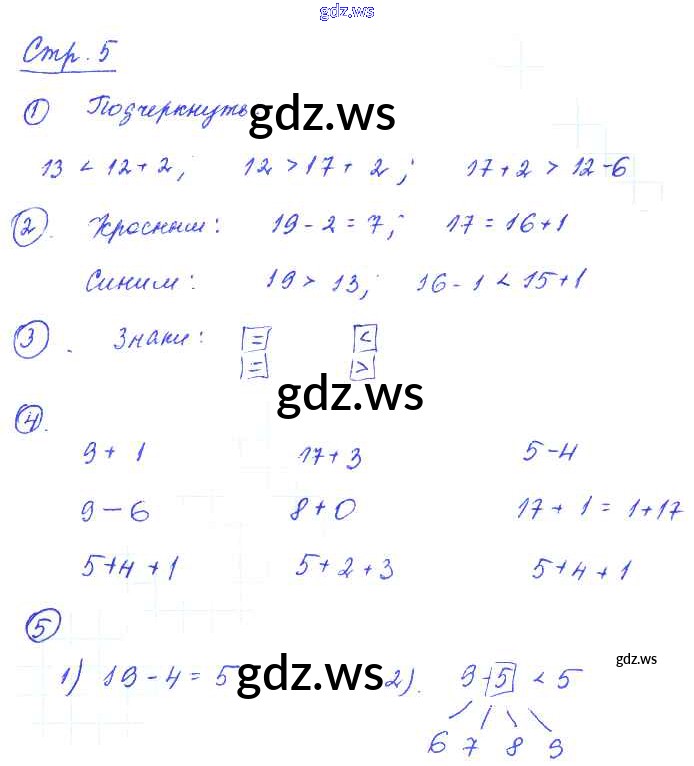 gdz.ws
Стр. 5
① Подчеркнуть:
gdz.ws
13 < 12 + 2; 12 > 17 + 2; 17 + 2 > 12 - 6
②. Красным: 19 - 2 = 7; 17 = 16 + 1
Синим: 19 > 13; 16 - 1 < 15 + 1
③. Знаки: = <
= >
gdz.ws
④.
9 + 1 17 + 3 5 - 4
9 - 6 8 + 0 17 + 1 = 1 + 17
5 + 4 + 1 5 + 2 + 3 5 + 4 + 1
⑤
1) 19 - 4 = 5 2). 9 - 5 < 5
gdz.ws gdz.ws gdz.ws
6 7 8 9